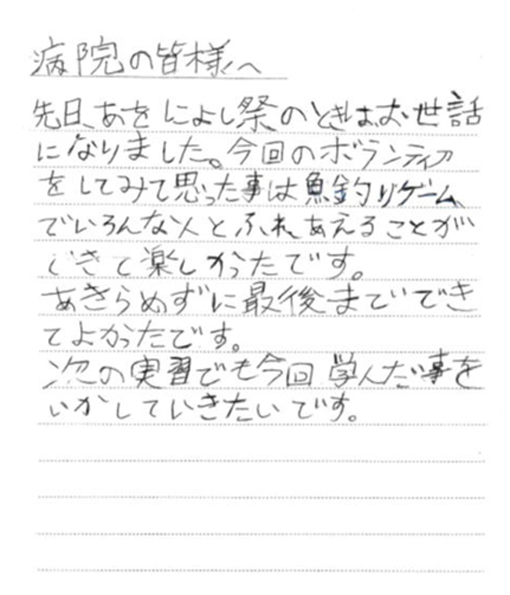 病院の皆様へ
先日、あをによし祭のときは、お世話
になりました。今回のボランティア
をしてみて思った事は魚釣りゲーム
でいろんな人とふれあえることが
できて楽しかったです。
あきらめずに最後まででき
てよかったです。
次の実習でも今回学んだ事を
いかしていきたいです。